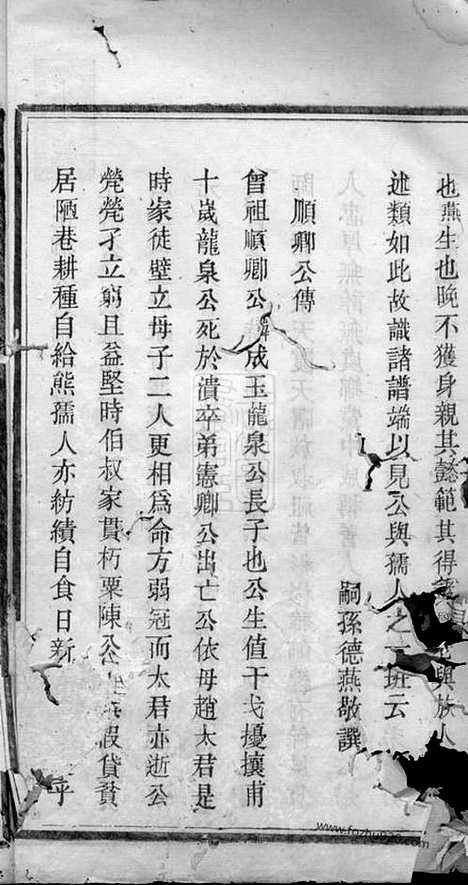 也燕生也晚不獲身親其懿範其得與族人
述類如此故識諸譜端以見公與孺人之一班云
嗣孫德燕敬譔
順卿公傳
曾祖順卿公諱成玉龍泉公長子也公生值干戈擾攘甫
十歲龍泉公死於潰卒弟憲卿公出亡公依母趙太君是
時家徒壁立母子二人更相爲命方弱冠而太君亦逝公
煢煢孑立窮且益堅時伯叔家貫朽粟陳公假貸貲
居陋巷耕種自給熊孺人亦紡績自食日新